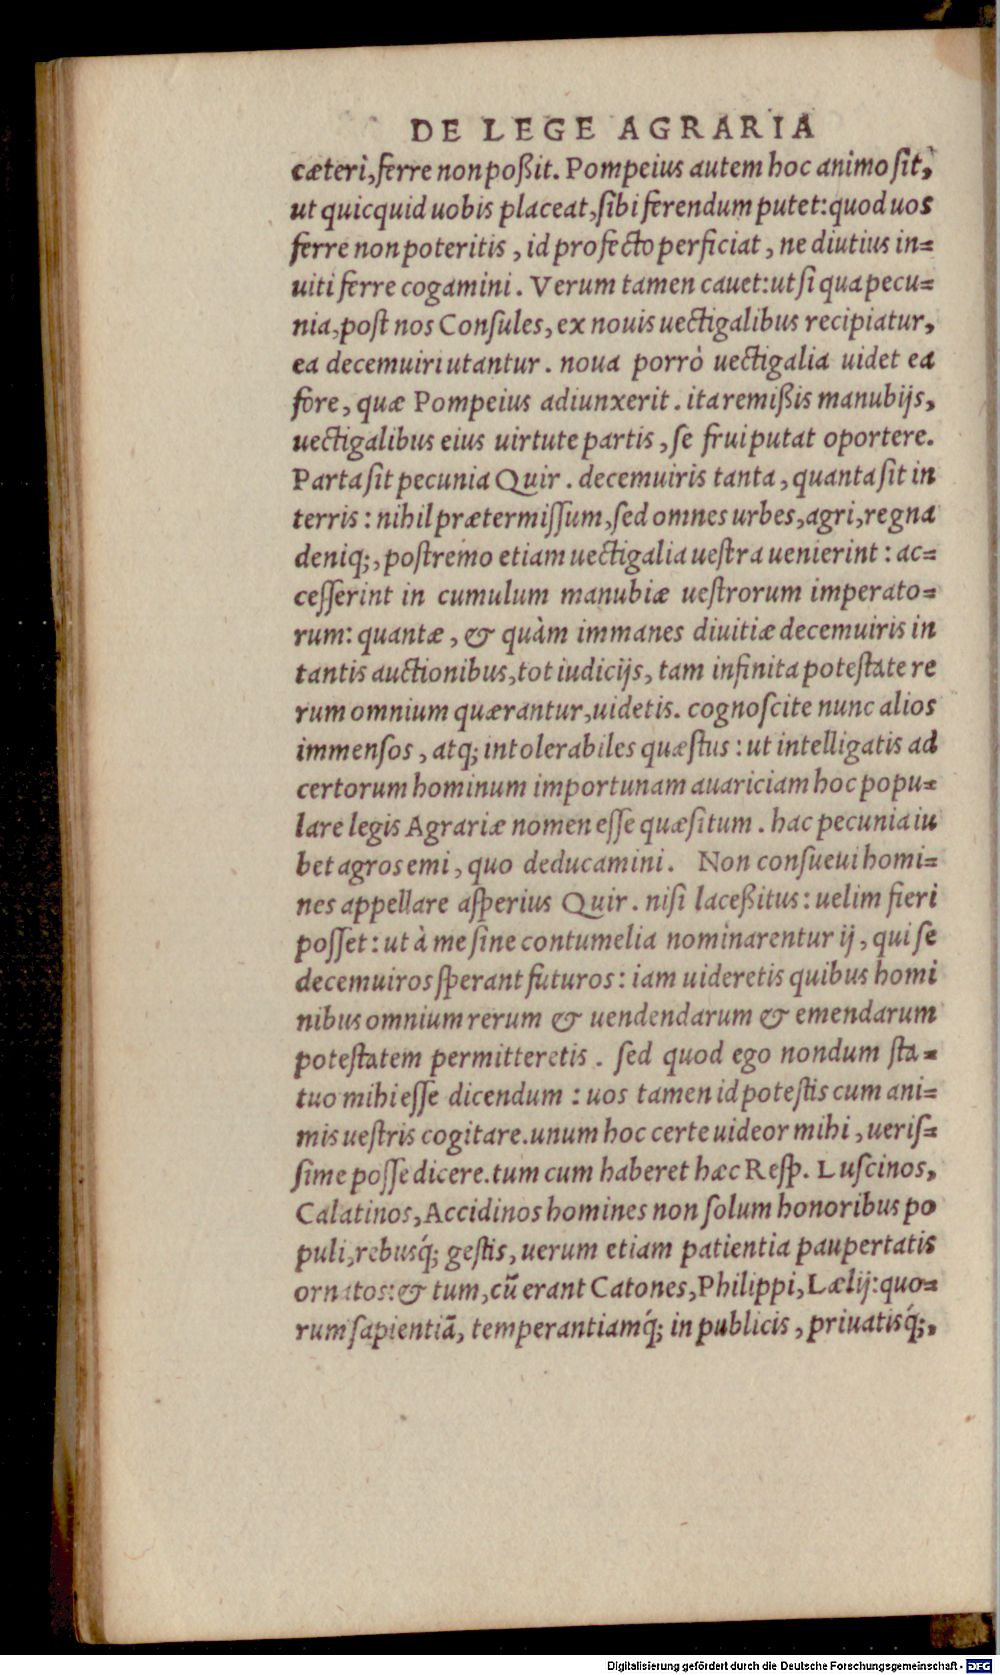 DE LEGE AGRARIA
cæteri, ferre non poßit. Pompeius autem hoc animo ſit,
ut quicquid uobis placeat, ſibi ferendum putet: quod uos
ferre non poteritis, id profecto perficiat, ne diutius in=
uiti ferre cogamini. Verum tamen cauet: ut ſi qua pecu=
nia, poſt nos Conſules, ex nouis uectigalibus recipiatur,
ea decemuiri utantur. noua porrò uectigalia uidet ea
fore, quæ Pompeius adiunxerit. ita remißis manubijs,
uectigalibus eius uirtute partis, ſe frui putat oportere.
Parta ſit pecunia Quir. decemuiris tanta, quanta ſit in
terris: nihil prætermiſſum, ſed omnes urbes, agri, regna
deniq;, poſtremo etiam uectigalia ueſtra uenierint: ac=
ceſſerint in cumulum manubiæ ueſtrorum imperato=
rum: quantæ, & quàm immanes diuitiæ decemuiris in
tantis auctionibus, tot iudicijs, tam infinita poteſtate re
rum omnium quærantur, uidetis. cognoſcite nunc alios
immenſos, atq; intolerabiles quæſtus: ut intelligatis ad
certorum hominum importunam auariciam hoc popu=
lare legis Agrariæ nomen eſſe quæſitum. hac pecunia iu
bet agros emi, quo deducamini. Non conſueui homi=
nes appellare aſperius Quir. niſi laceßitus: uelim fieri
poſſet: ut à me ſine contumelia nominarentur ij, qui ſe
decemuiros ſperant futuros: iam uideretis quibus homi
nibus omnium rerum & uendendarum & emendarum
poteſtatem permitteretis. ſed quod ego nondum ſta=
tuo mihi eſſe dicendum: uos tamen id poteſtis cum ani=
mis ueſtris cogitare. unum hoc certe uideor mihi, ueriſ=
ſime poſſe dicere. tum cum haberet hæc Reſp. Luſcinos,
Calatinos, Accidinos homines non ſolum honoribus po
puli, rebusq́; geſtis, uerum etiam patientia paupertatis
ornatos: & tum, cū erant Catones, Philippi, Lælij: quo=
rum ſapientiã, temperantiamq́; in publicis, priuatisq́;,
Digitalisierung gefördert durch die Deutsche Forschungsgemeinschaft - DFG